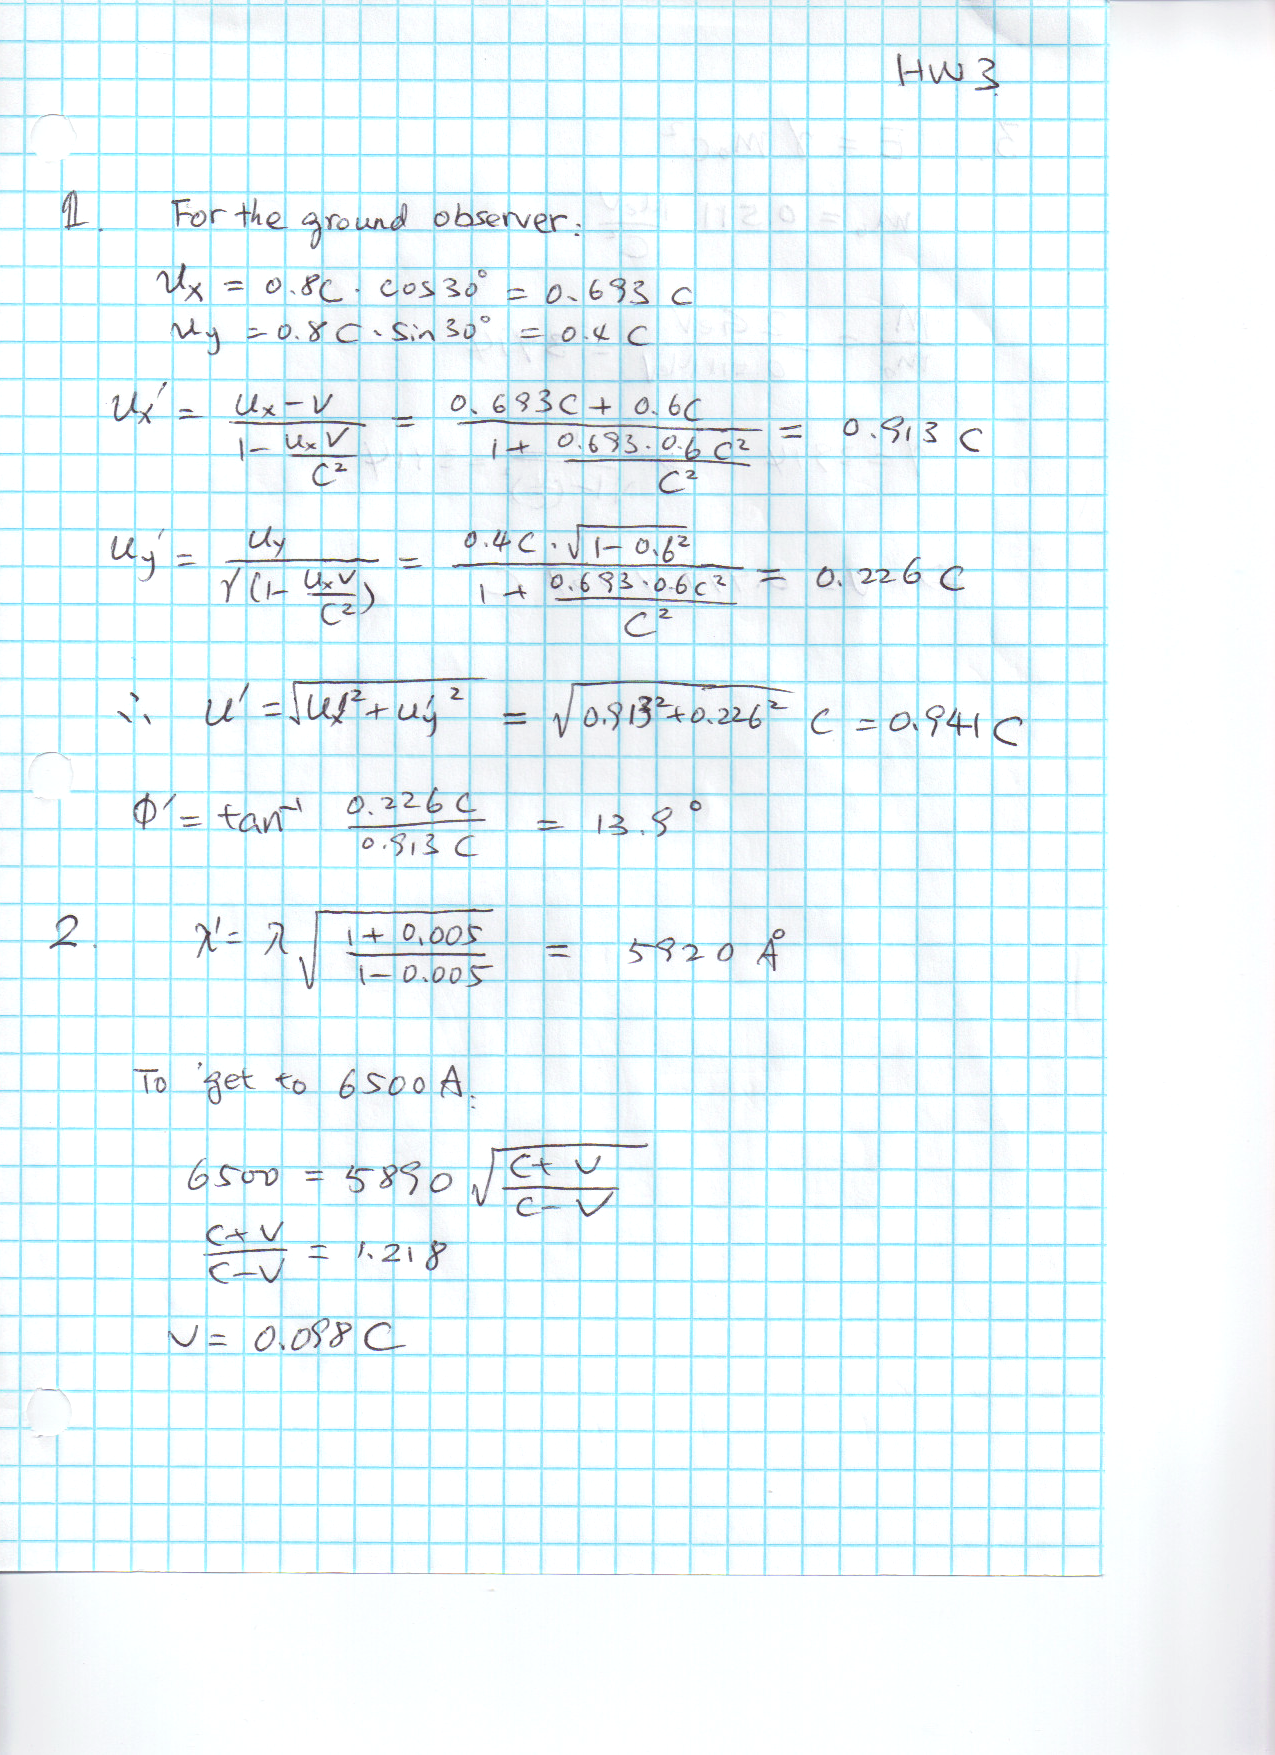 HW3
1. For the ground observer:
Ux = 0.8C · cos30° = 0.693 C
Uy = 0.8C · sin30° = 0.4 C
Ux' = (Ux - V) / (1 - UxV/C²) = (0.693C + 0.6C) / (1 + 0.693·0.6C²/C²) = 0.913 C
Uy' = Uy / (γ(1 - UxV/C²)) = (0.4C · √(1 - 0.6²)) / (1 + 0.693·0.6C²/C²) = 0.226 C
∴ U' = √(Ux'² + Uy'²) = √(0.913² + 0.226²) C = 0.941 C
Φ' = tan⁻¹ (0.226 C / 0.913 C) = 13.9°
2. λ' = λ √((1 + 0.005) / (1 - 0.005)) = 5920 Å
To get to 6500 A:
6500 = 5890 √((C + V) / (C - V))
(C + V) / (C - V) = 1.218
V = 0.098 C